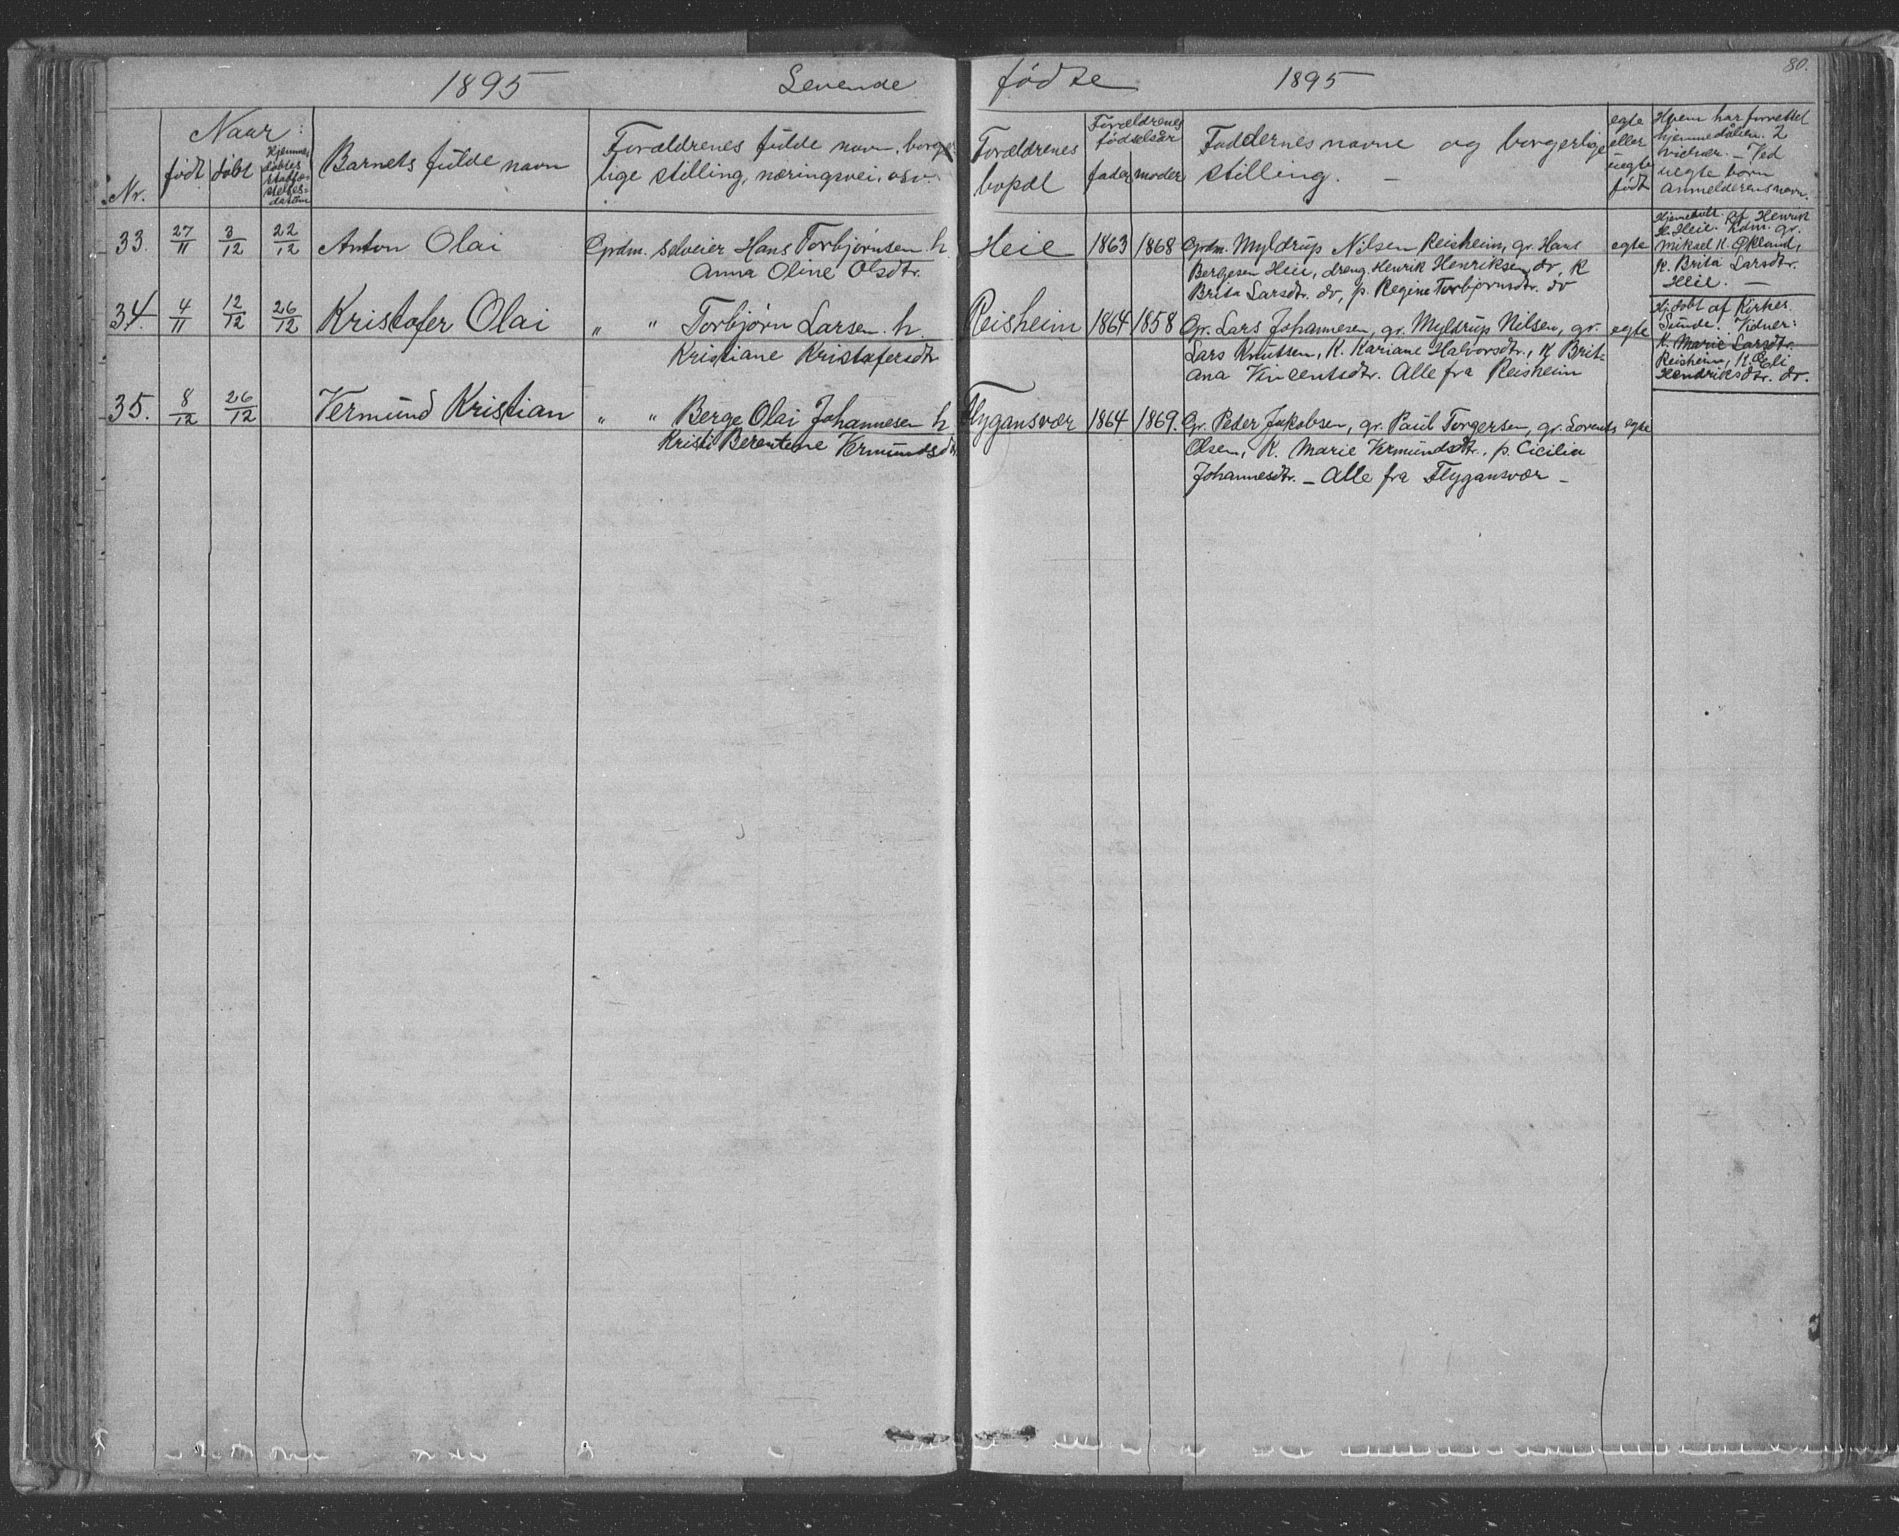 1895 Levende
Naar:
Nr. født døbt Hjemme-
døbtes
stadfæ-
stelses-
datum
Barnets fulde navn
Forældrenes fulde navn, borger-
lige stilling, næringsvei, osv.
33. 27/11 3/12 22/12 Anton Olai Grdm. selveier Hans Torbjørnsen h.
Anna Oline Olsdtr.
34. 4/11 12/12 26/12 Kristofer Olai " " Torbjørn Larsen h.
Kristiane Kristofersdtr
35. 8/12 26/12 Vermund Kristian " " Berge Olai Johannesen h
Kristi Berentine Vermundsdtr
fødte 1895 80.
Forældrenes
bopæl
Forældrenes
fødselsår
fader moder
Faddernes navne og borgerlige
stilling. –
egte
eller
uegte
født
Hvem har forrettet
hjemmedåben. 2
vidner. – Ved
uegte børn
anmelderens navn.
Heie 1863 1868 Grdm. Myldrup Nilsen Reisheim, gr. Hans egte
Bergesen Heie, dreng Henrik Henriksen dv, K
Brita Larsdtr. dv, p. Regine Torbjørnsdtr. dv
Hjemdøbt af Henrik
H. Heie. Kdm. gr.
Mikael K. Økland,
K. Brita Larsdtr.
Heie. –
Reisheim 1864 1858 Gr. Lars Johannesen, gr. Myldrup Nilsen, gr. egte
Lars Knutsen, K. Kariane Halvorsdtr., K Brit-
ana Vincentsdtr. Alle fra Reisheim
Hj.døbt af Kirkes.
Sunde. Vidner:
K. Marie Larsdtr.
Reisheim, K. Eli
Hendriksdtr. dv.
Flygansvær 1864 1869. Gr. Peder Jakobsen, gr. Paul Torgersen, gr. Lorents egte
Olsen, K. Marie Vermundsdtr., p. Cicilia
Johannesdtr. – Alle fra Flygansvær –